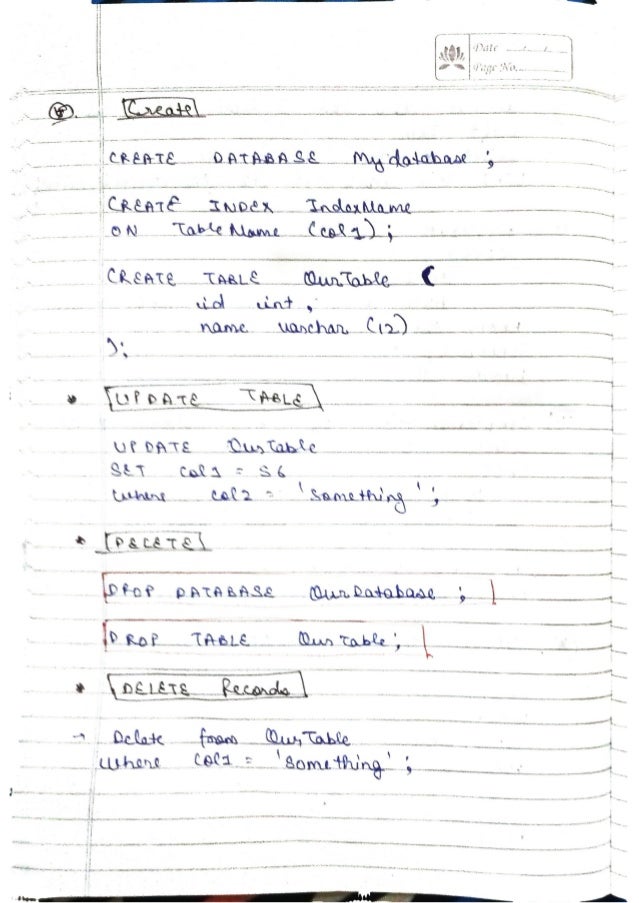 Date
Page No.
Create
CREATE DATABASE My database ;
CREATE INDEX IndexName
ON Table Name (col1) ;
CREATE TABLE OurTable (
id int ,
name varchar (12)
);
* UPDATE TABLE
UPDATE OurTable
SET Col1 = 56
where col2 = 'something' ;
* DELETE
DROP DATABASE OurDatabase ;
DROP TABLE OurTable ;
* DELETE Records
→ Delete from OurTable
where Col1 = 'something' ;